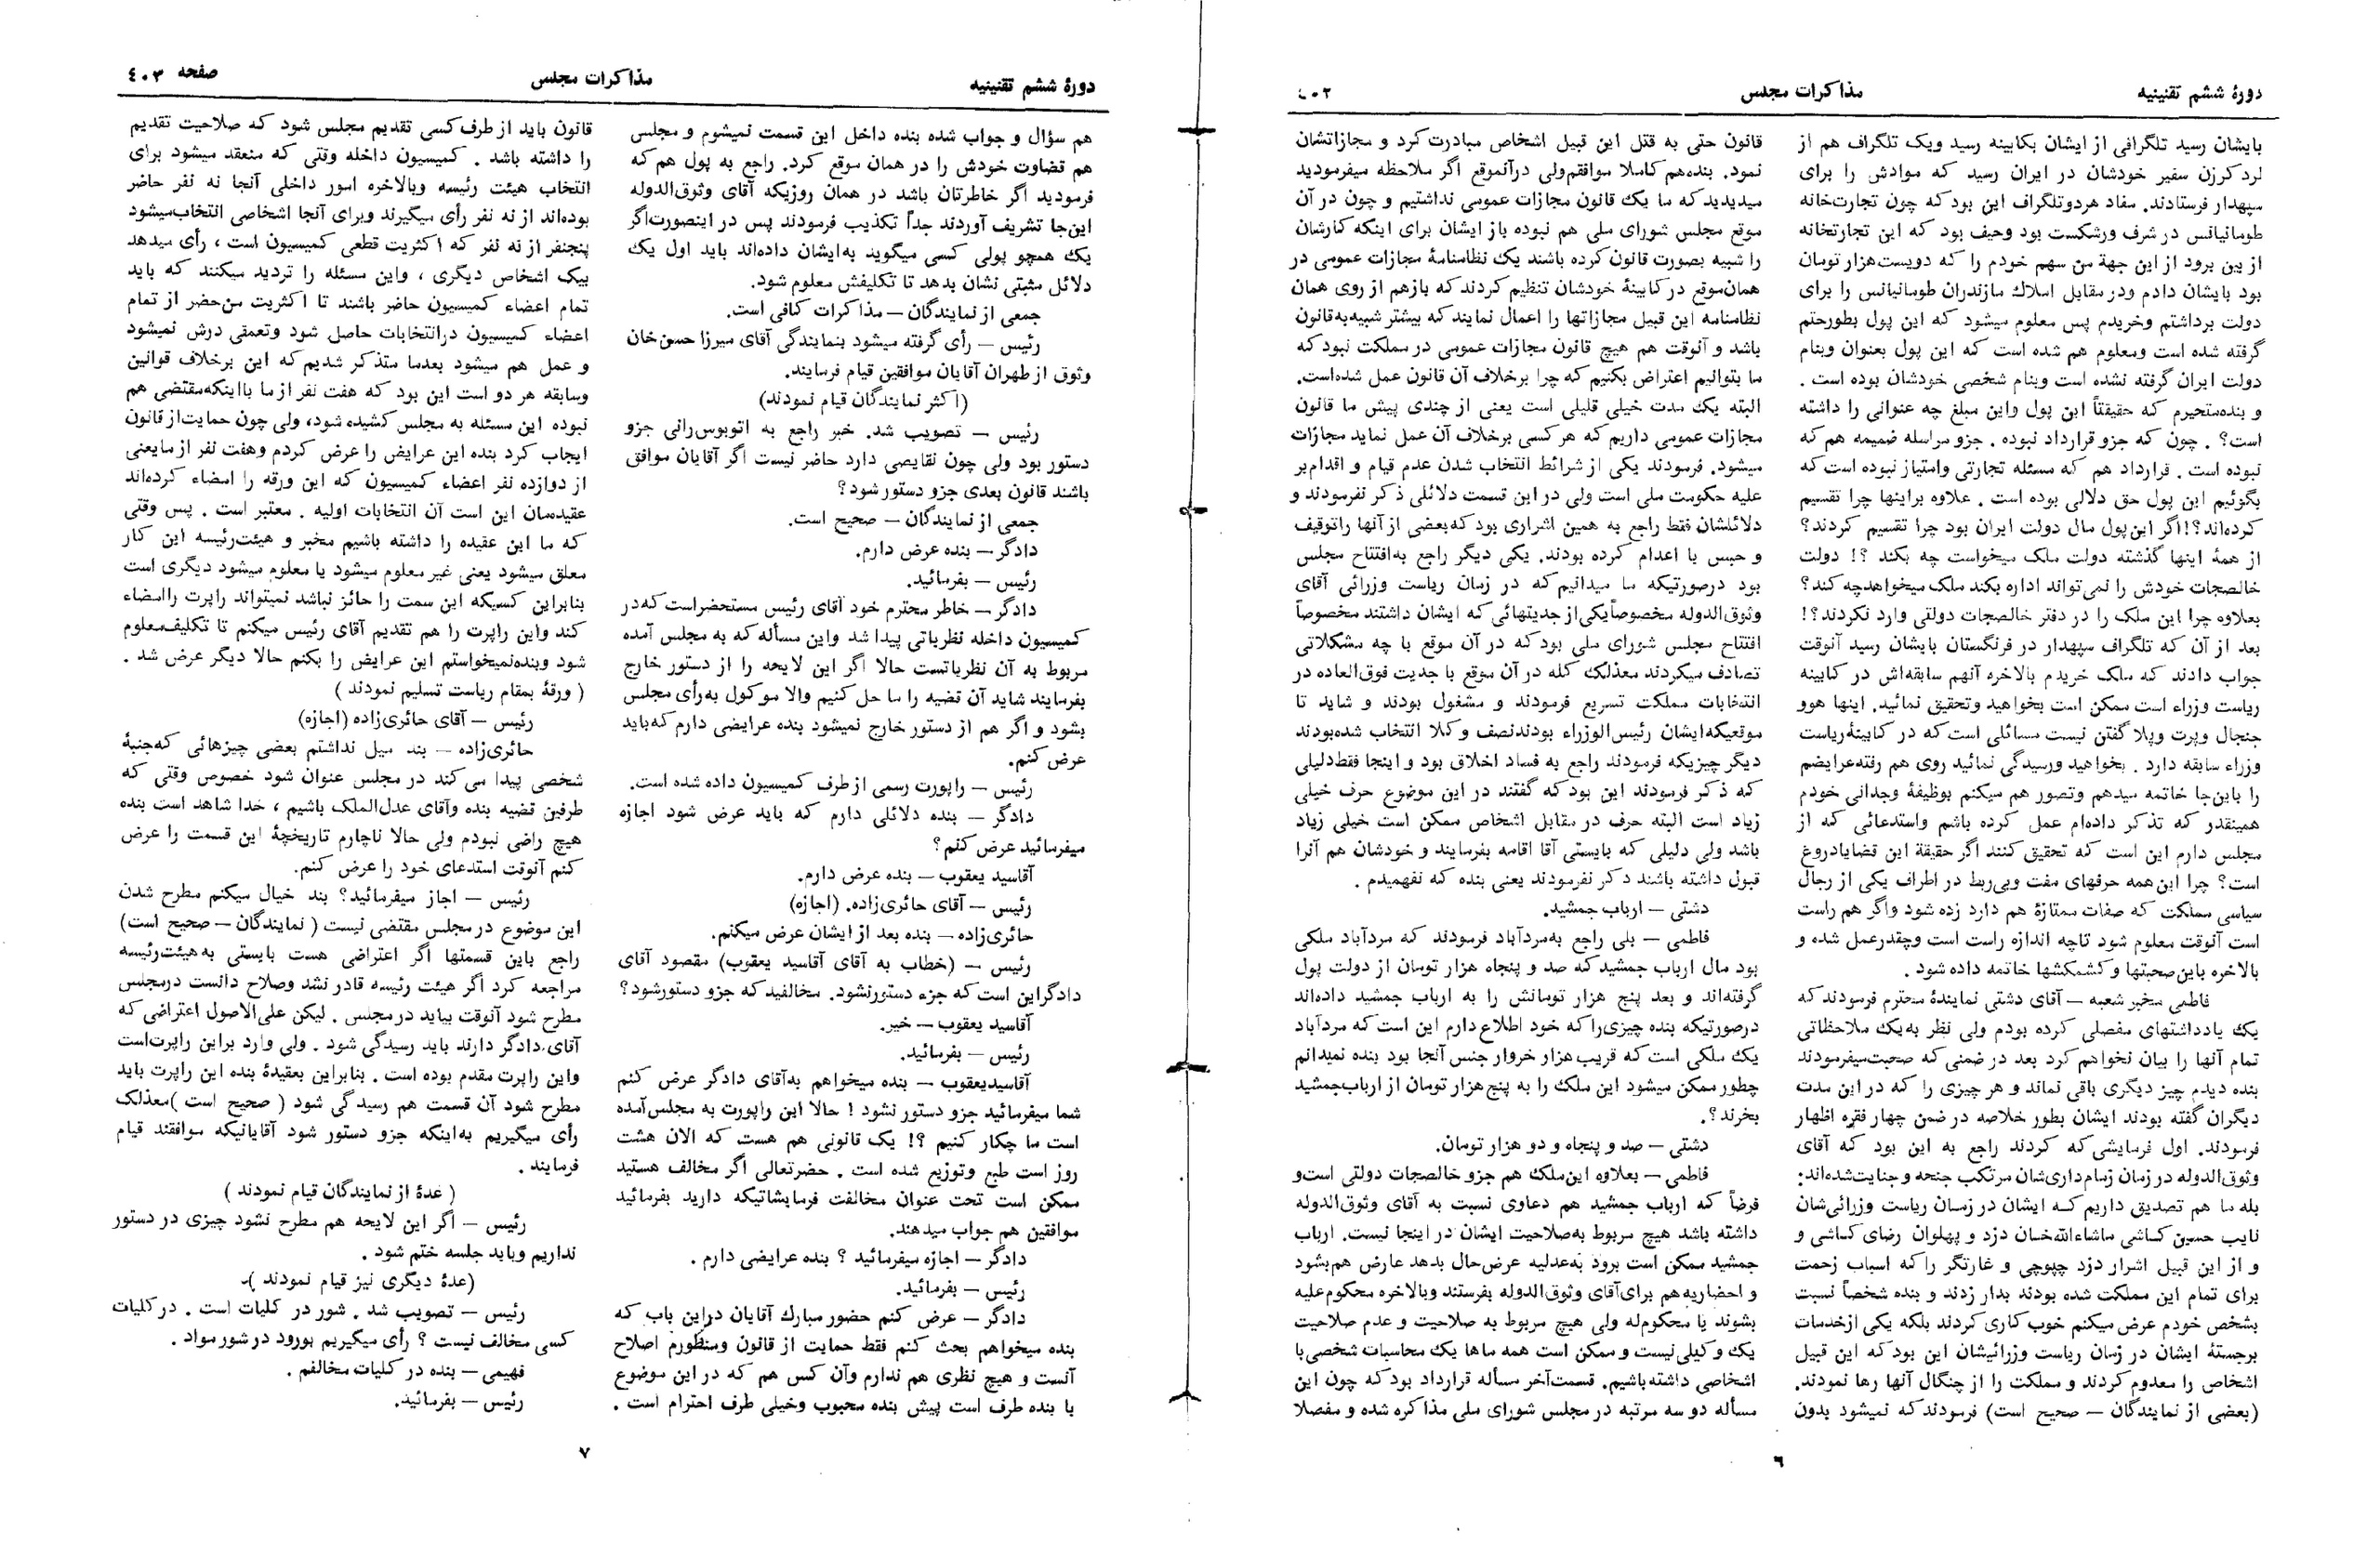 دورهٔ ششم تقنینیه
مذاکرات مجلس
٤٠٢
بایشان رسید تلگرافی از ایشان بکابینه رسید ویک تلگراف هم از
لرد کرزن سفیر خودشان در ایران رسید که موادش را برای
سپهدار فرستادند. مفاد هردوتلگراف این بود که چون تجارت‌خانه
طومانیانس در شرف ورشکست بود وحیف بود که این تجارتخانه
از بین برود از این جهة من سهم خودم را که دویست‌هزار تومان
بود بایشان دادم ودر مقابل املاک مازندران طومانیانس را برای
دولت برداشتم وخریدم پس معلوم میشود که این پول بطورحتم
گرفته شده است ومعلوم هم شده است که این پول بعنوان وبنام
دولت ایران گرفته نشده است وبنام شخصی خودشان بوده است .
و بنده‌متحیرم که حقیقتاً این پول واین مبلغ چه عنوانی را داشته
است؟ . چون که جزو قرارداد نبوده . جزو مراسله ضمیمه هم که
نبوده است . قرارداد هم که مسئله تجارتی وامتیاز نبوده است که
بگوئیم این پول حق دلالی بوده است . علاوه براینها چرا تقسیم
کرده‌اند؟!اگر این‌پول مال دولت ایران بود چرا تقسیم کردند؟
از همهٔ اینها گذشته دولت ملک میخواست چه بکند ؟! دولت
خالصجات خودش را نمی‌تواند اداره بکند ملک میخواهدچه کند؟
بعلاوه چرا این ملک را در دفتر خالصجات دولتی وارد نکردند؟!
بعد از آن که تلگراف سپهدار در فرنگستان بایشان رسید آنوقت
جواب دادند که ملک خریدم بالاخره آنهم سابقه‌اش در کابینه
ریاست وزراء است ممکن است بخواهید وتحقیق نمائید. اینها هوو
جنجال وپرت وپلا گفتن نیست مسائلی است که در کابینهٔ‌ریاست
وزراء سابقه دارد . بخواهید ورسیدگی نمائید روی هم رفته‌عرایضم
را باین‌جا خاتمه میدهم وتصور هم میکنم بوظیفهٔ وجدانی خودم
همینقدر که تذکر داده‌ام عمل کرده باشم واستدعائی که از
مجلس دارم این است که تحقیق کنند اگر حقیقة این قضایادروغ
است؟ چرا این همه حرفهای مفت وبی‌ربط در اطراف یکی از رجال
سیاسی مملکت که صفات ممتازهٔ هم دارد زده شود واگر هم راست
است آنوقت معلوم شود تاچه اندازه راست است وچقدرعمل شده و
بالاخره باین‌صحبتها وکشمکشها خاتمه داده شود .
فاطمی مخبر شعبه — آقای دشتی نمایندهٔ محترم فرمودند که
یک یادداشتهای مفصلی کرده بودم ولی نظر به‌یک ملاحظاتی
تمام آنها را بیان نخواهم‌کرد بعد در ضمنی که صحبت‌میفرمودند
بنده دیدم چیز دیگری باقی نماند و هر چیزی را که در این مدت
دیگران گفته بودند ایشان بطور خلاصه در ضمن چهار فقره اظهار
فرمودند. اول فرمایشی‌که کردند راجع به این بود که آقای
وثوق‌الدوله در زمان زمام‌داری‌شان مرتکب جنحه وجنایت‌شده‌اند:
بله ما هم تصدیق داریم‌کـه ایشان در زمـان ریاست وزرائی‌شان
نایب حسین کـاشی ماشاءالله‌خـان دزد و پهلوان رضای کـاشی و
و از این قبیل اشرار دزد چپوچی و غارتگر را که اسباب زحمت
برای تمام این مملکت شده بودند بدار زدند و بنده شخصاً نسبت
بشخص خودم عرض میکنم خوب کاری کردند بلکه یکی ازخدمات
برجستهٔ ایشان در زمان ریاست وزرائیشان این بود که این قبیل
اشخاص را معدوم کردند و مملکت را از چنگال آنها رها نمودند.
(بعضی از نمایندگان — صحیح است) فرمودند که نمیشود بدون
قانون حتی به قتل این قبیل اشخاص مبادرت کرد و مجازاتشان
نمود. بنده‌هم کاملا موافقم‌ولی درآنموقع اگر ملاحظه میفرمودید
میدیدید که ما یک قانون مجازات عمومی نداشتیم و چون در آن
موقع مجلس شورای ملی هم نبوده باز ایشان برای اینکه کارشان
را شبیه بصورت قانون کرده باشند یک نظامنامهٔ مجازات عمومی در
همان‌موقع در کابینهٔ خودشان تنظیم کردند که بازهم از روی همان
نظامنامه این قبیل مجازاتها را اعمال نمایند که بیشتر شبیه‌به‌قانون
باشد و آنوقت هم هیچ قانون مجازات عمومی در مملکت نبود که
ما بتوانیم اعتراض بکنیم که چرا برخلاف آن قانون عمل شده‌است.
البته یک مدت خیلی قلیلی است یعنی از چندی پیش ما قانون
مجازات عمومی داریم که هر کسی برخلاف آن عمل نماید مجازات
میشود. فرمودند یکی از شرائط انتخاب شدن عدم قیام و اقدام‌بر
علیه حکومت ملی است ولی در این قسمت دلائلی ذکر نفرمودند و
دلائلشان فقط راجع به همین اشراری بود که بعضی از آنها راتوقیف
و حبس یا اعدام کرده بودند. یکی دیگر راجع به‌افتتاح مجلس
بود درصورتیکه ما میدانیم که در زمان ریاست وزرائی آقای
وثوق‌الدوله مخصوصاً‌یکی‌از جدیتهائی که ایشان داشتند مخصوصاً
افتتاح مجلس شورای ملی بود که در آن موقع با چه مشکلاتی
تصادف میکردند معذلک کله در آن موقع با جدیت فوق‌العاده در
انتخابات مملکت تسریع فرمودند و مشغول بودند و شاید تا
موقعیکه‌ایشان رئیس‌الوزراء بودندنصف وکلا انتخاب شده‌بودند
دیگر چیزیکه فرمودند راجع به فساد اخلاق بود و اینجا فقط‌دلیلی
که ذکر فرمودند این بود که گفتند در این موضوع حرف خیلی
زیاد است البته حرف در مقابل اشخاص ممکن است خیلی زیاد
باشد ولی دلیلی که بایستی آقا اقامه بفرمایند و خودشان هم آنرا
قبول داشته باشند ذکر نفرمودند یعنی بنده که نفهمیدم .
دشتی — ارباب جمشید.
فاطمی — بلی راجع به‌مردآباد فرمودند که مردآباد ملکی
بود مال ارباب جمشید که صد و پنجاه هزار تومان از دولت پول
گرفته‌اند و بعد پنج هزار تومانش را به ارباب جمشید داده‌اند
درصورتیکه بنده چیزی‌را که خود اطلاع دارم این است که مردآباد
یک ملکی است که قریب هزار خروار جنس آنجا بود بنده نمیدانم
چطور ممکن میشود این ملک را به پنج‌هزار تومان از ارباب‌جمشید
بخرند؟.
دشتی — صد و پنجاه و دو هزار تومان.
فاطمی — بعلاوه این‌ملک هم جزو خالصجات دولتی است‌و
فرضاً که ارباب جمشید هم دعاوی نسبت به آقای وثوق‌الدوله
داشته باشد هیچ مربوط به‌صلاحیت ایشان در اینجا نیست. ارباب
جمشید ممکن است برود به‌عدلیه عرض‌حال بدهد عارض هم‌بشود
و احضاریه‌هم برای‌آقای وثوق‌الدوله بفرستند وبالاخره محکوم‌علیه
بشوند یا محکوم‌له ولی هیچ مربوط به صلاحیت و عدم صلاحیت
یک وکیلی‌نیست و ممکن است همه ماها یک محاسبات شخصی‌با
اشخاصی داشته‌باشیم. قسمت‌آخر مسأله قرارداد بود که چون این
مسأله دو سه مرتبه در مجلس شورای ملی مذاکره شده و مفصلا
٦
دورهٔ ششم تقنینیه
مذاکرات مجلس
صفحه ٤٠٣
هم سؤال و جواب شده بنده داخل این قسمت نمیشوم و مجلس
هم قضاوت خودش را در همان موقع کرد. راجع به پول هم که
فرمودید اگر خاطرتان باشد در همان روزیکه آقای وثوق‌الدوله
این‌جا تشریف آوردند جداً تکذیب فرمودند پس در اینصورت‌اگر
یک همچو پولی کسی میگوید به‌ایشان داده‌اند باید اول یک
دلائل مثبتی نشان بدهد تا تکلیفش معلوم شود.
جمعی از نمایندگان — مذاکرات کافی است.
رئیس — رأی گرفته میشود بنمایندگی آقای میرزا حسن‌خان
وثوق از طهران آقایان موافقین قیام فرمایند.
(اکثر نمایندگان قیام نمودند)
رئیس — تصویب شد. خبر راجع به اتوبوس‌رانی جزو
دستور بود ولی چون نقایصی دارد حاضر نیست اگر آقایان موافق
باشند قانون بعدی جزو دستور شود؟
جمعی از نمایندگان — صحیح است.
دادگر — بنده عرض دارم.
رئیس — بفرمائید.
دادگر — خاطر محترم خود آقای رئیس مستحضراست که در
کمیسیون داخله نظریاتی پیدا شد واین مسأله که به مجلس آمده
مربوط به آن نظریاتست حالا اگر این لایحه را از دستور خارج
بفرمایند شاید آن قضیه را ما حل کنیم والا موکول به‌رأی مجلس
بشود و اگر هم از دستور خارج نمیشود بنده عرایضی دارم که‌باید
عرض کنم.
رئیس — راپورت رسمی از طرف کمیسیون داده شده است.
دادگر — بنده دلائلی دارم که باید عرض شود اجازه
میفرمائید عرض کنم؟
آقاسید یعقوب — بنده عرض دارم.
رئیس — آقای حائری‌زاده. (اجازه)
حائری‌زاده — بنده بعد از ایشان عرض میکنم.
رئیس — (خطاب به آقای آقاسید یعقوب) مقصود آقای
دادگراین است که جزء دستورنشود. مخالفید که جزو دستورشود؟
آقاسید یعقوب — خیر.
رئیس — بفرمائید.
آقاسیدیعقوب — بنده میخواهم به‌آقای دادگر عرض کنم
شما میفرمائید جزو دستور نشود ! حالا این راپورت به مجلس‌آمده
است ما چکار کنیم ؟! یک قانونی هم هست که الان هشت
روز است طبع وتوزیع شده است . حضرتعالی اگر مخالف هستید
ممکن است تحت عنوان مخالفت فرمایشاتیکه دارید بفرمائید
موافقین هم جواب میدهند.
دادگر — اجازه میفرمائید ؟ بنده عرایضی دارم .
رئیس — بفرمائید.
دادگر — عرض کنم حضور مبارک آقایان دراین باب که
بنده میخواهم بحث کنم فقط حمایت از قانون ومنظورم اصلاح
آنست و هیچ نظری هم ندارم وآن کس هم که در این موضوع
با بنده طرف است پیش بنده محبوب وخیلی طرف احترام است .
قانون باید از طرف کسی تقدیم مجلس شود که صلاحیت تقدیم
را داشته باشد . کمیسیون داخله وقتی که منعقد میشود برای
انتخاب هیئت رئیسه وبالاخره امور داخلی آنجا نه نفر حاضر
بوده‌اند از نه نفر رأی میگیرند وبرای آنجا اشخاصی انتخاب‌میشود
پنجنفر از نه نفر که اکثریت قطعی کمیسیون است ، رأی میدهد
بیک اشخاص دیگری ، واین مسئله را تردید میکنند که باید
تمام اعضاء کمیسیون حاضر باشند تا اکثریت من‌حضر از تمام
اعضاء کمیسیون درانتخابات حاصل شود وتعمقی درش نمیشود
و عمل هم میشود بعدما متذکر شدیم که این برخلاف قوانین
وسابقه هر دو است این بود که هفت نفر از ما بااینکه‌مقتضی هم
نبوده این مسئله به مجلس کشیده شود، ولی چون حمایت‌از قانون
ایجاب کرد بنده این عرایض را عرض کردم وهفت نفر از مایعنی
از دوازده نفر اعضاء کمیسیون که این ورقه را امضاء کرده‌اند
عقیده‌مان این است آن انتخابات اولیه . معتبر است . پس وقتی
که ما این عقیده را داشته باشیم مخبر و هیئت‌رئیسه این کار
معلق میشود یعنی غیر معلوم میشود یا معلوم میشود دیگری است
بنابراین کسیکه این سمت را حائز نباشد نمیتواند راپرت راامضاء
کند واین راپرت را هم تقدیم آقای رئیس میکنم تا تکلیف‌معلوم
شود وبنده‌نمیخواستم این عرایض را بکنم حالا دیگر عرض شد .
( ورقهٔ بمقام ریاست تسلیم نمودند )
رئیس — آقای حائری‌زاده (اجازه)
حائری‌زاده — بند میل نداشتم بعضی چیزهائی که‌جنبهٔ
شخصی پیدا می‌کند در مجلس عنوان شود خصوص وقتی که
طرفین قضیه بنده وآقای عدل‌الملک باشیم ، خدا شاهد است بنده
هیچ راضی نبودم ولی حالا ناچارم تاریخچهٔ این قسمت را عرض
کنم آنوقت استدعای خود را عرض کنم.
رئیس — اجاز میفرمائید؟ بند خیال میکنم مطرح شدن
این موضوع در مجلس مقتضی نیست ( نمایندگان — صحیح است)
راجع باین قسمتها اگر اعتراضی هست بایستی به هیئت‌رئیسه
مراجعه کرد اگر هیئت رئیسه قادر نشد وصلاح دانست درمجلس
مطرح شود آنوقت بیاید در مجلس . لیکن علی‌الاصول اعتراضی که
آقای دادگر دارند باید رسیدگی شود . ولی وارد براین راپرت‌است
واین راپرت مقدم بوده است . بنابراین بعقیدهٔ بنده این راپرت باید
مطرح شود آن قسمت هم رسیدگی شود ( صحیح است )معذلک
رأی میگیریم به‌اینکه جزو دستور شود آقایانیکه موافقند قیام
فرمایند .
( عدهٔ از نمایندگان قیام نمودند )
رئیس — اگر این لایحه هم مطرح نشود چیزی در دستور
نداریم وباید جلسه ختم شود .
(عدهٔ دیگری نیز قیام نمودند ).
رئیس — تصویب شد . شور در کلیات است . در کلیات
کسی مخالف نیست ؟ رأی میگیریم بورود در شور مواد .
فهیمی — بنده در کلیات مخالفم .
رئیس — بفرمائید.
٧